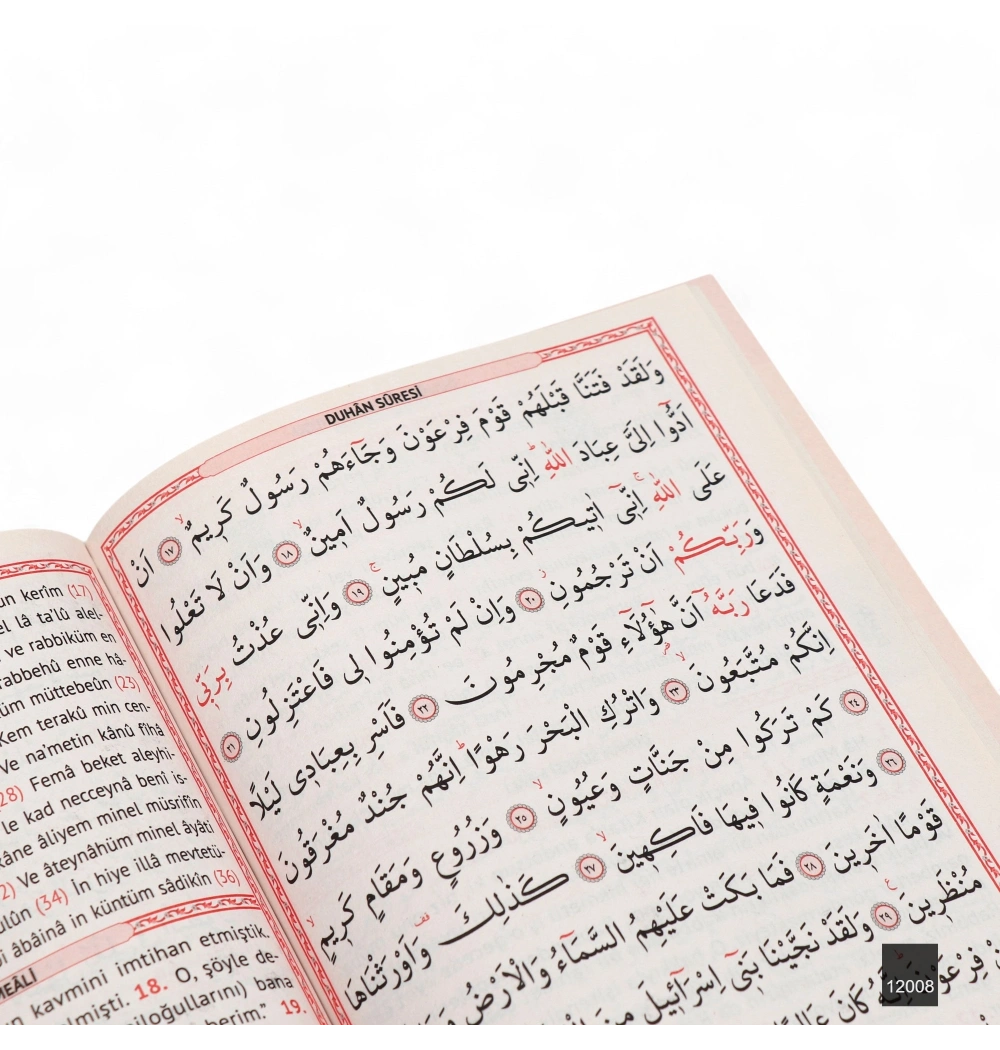 un kerîm (17)
el lâ ta'lû alel-
ve rabbiküm en
rabbehû enne hâ-
üm müttebeûn (23)
Kem terakû min cen-
Ve na'metin kânû fîhâ
28) Femâ beket aleyhi-
le kad necceynâ benî is-
kâne âliyem minel müsrifîn
2) Ve âteynâhüm minel âyâti
ulûn (34) İn hiye illâ mevtetü-
bi âbâinâ in küntüm sâdikîn (36)
MEÂLI
un kavmini imtihan etmiştik.
elmişti. 18. O, şöyle de-
iloğullarını) bana
berim." 19.
DUHÂN SÛRESİ
وَلَقَدْ فَتَنَّا قَبْلَهُمْ قَوْمَ فِرْعَوْنَ وَجَٓاءَهُمْ رَسُولٌ كَر۪يمٌۙ ﴿١٧﴾ اَنْ
اَدُّٓوا اِلَىَّ عِبَادَ اللّٰهِۜ اِنّ۪ى لَكُمْ رَسُولٌ اَم۪ينٌۙ ﴿١٨﴾ وَاَنْ لَا تَعْلُوا
عَلَى اللّٰهِۚ اِنّ۪ٓى اٰت۪يكُمْ بِسُلْطَانٍ مُب۪ينٍۚ ﴿١٩﴾ وَاِنّ۪ى عُذْتُ بِرَبّ۪ى
وَرَبِّكُمْ اَنْ تَرْجُمُونِۘ ﴿٢٠﴾ وَاِنْ لَمْ تُؤْمِنُوا ل۪ى فَاعْتَزِلُونِ ﴿٢١﴾
فَدَعَا رَبَّهُٓ اَنَّ هٰٓؤُ۬لَٓاءِ قَوْمٌ مُجْرِمُونَ ﴿٢٢﴾ فَاَسْرِ بِعِبَاد۪ى لَيْلًا
اِنَّكُمْ مُتَّبَعُونَۙ ﴿٢٣﴾ وَاتْرُكِ الْبَحْرَ رَهْوًاۜ اِنَّهُمْ جُنْدٌ مُغْرَقُونَ
﴿٢٤﴾ كَمْ تَرَكُوا مِنْ جَنَّاتٍ وَعُيُونٍۙ ﴿٢٥﴾ وَزُرُوعٍ وَمَقَامٍ كَر۪يمٍۙ
﴿٢٦﴾ وَنَعْمَةٍ كَانُوا ف۪يهَا فَاكِه۪ينَۙ ﴿٢٧﴾ كَذٰلِكَ وَاَوْرَثْنَاهَا
قَوْمًا اٰخَر۪ينَ ﴿٢٨﴾ فَمَا بَكَتْ عَلَيْهِمُ السَّمَٓاءُ وَالْاَرْضُ
مُنْظَر۪ينَۚ ﴿٢٩﴾ وَلَقَدْ نَجَّيْنَا بَن۪ٓى اِسْرَٓائ۪يلَ مِنَ
فِرْعَوْنَۜ اِنَّهُ كَانَ عَالِيًا
12008